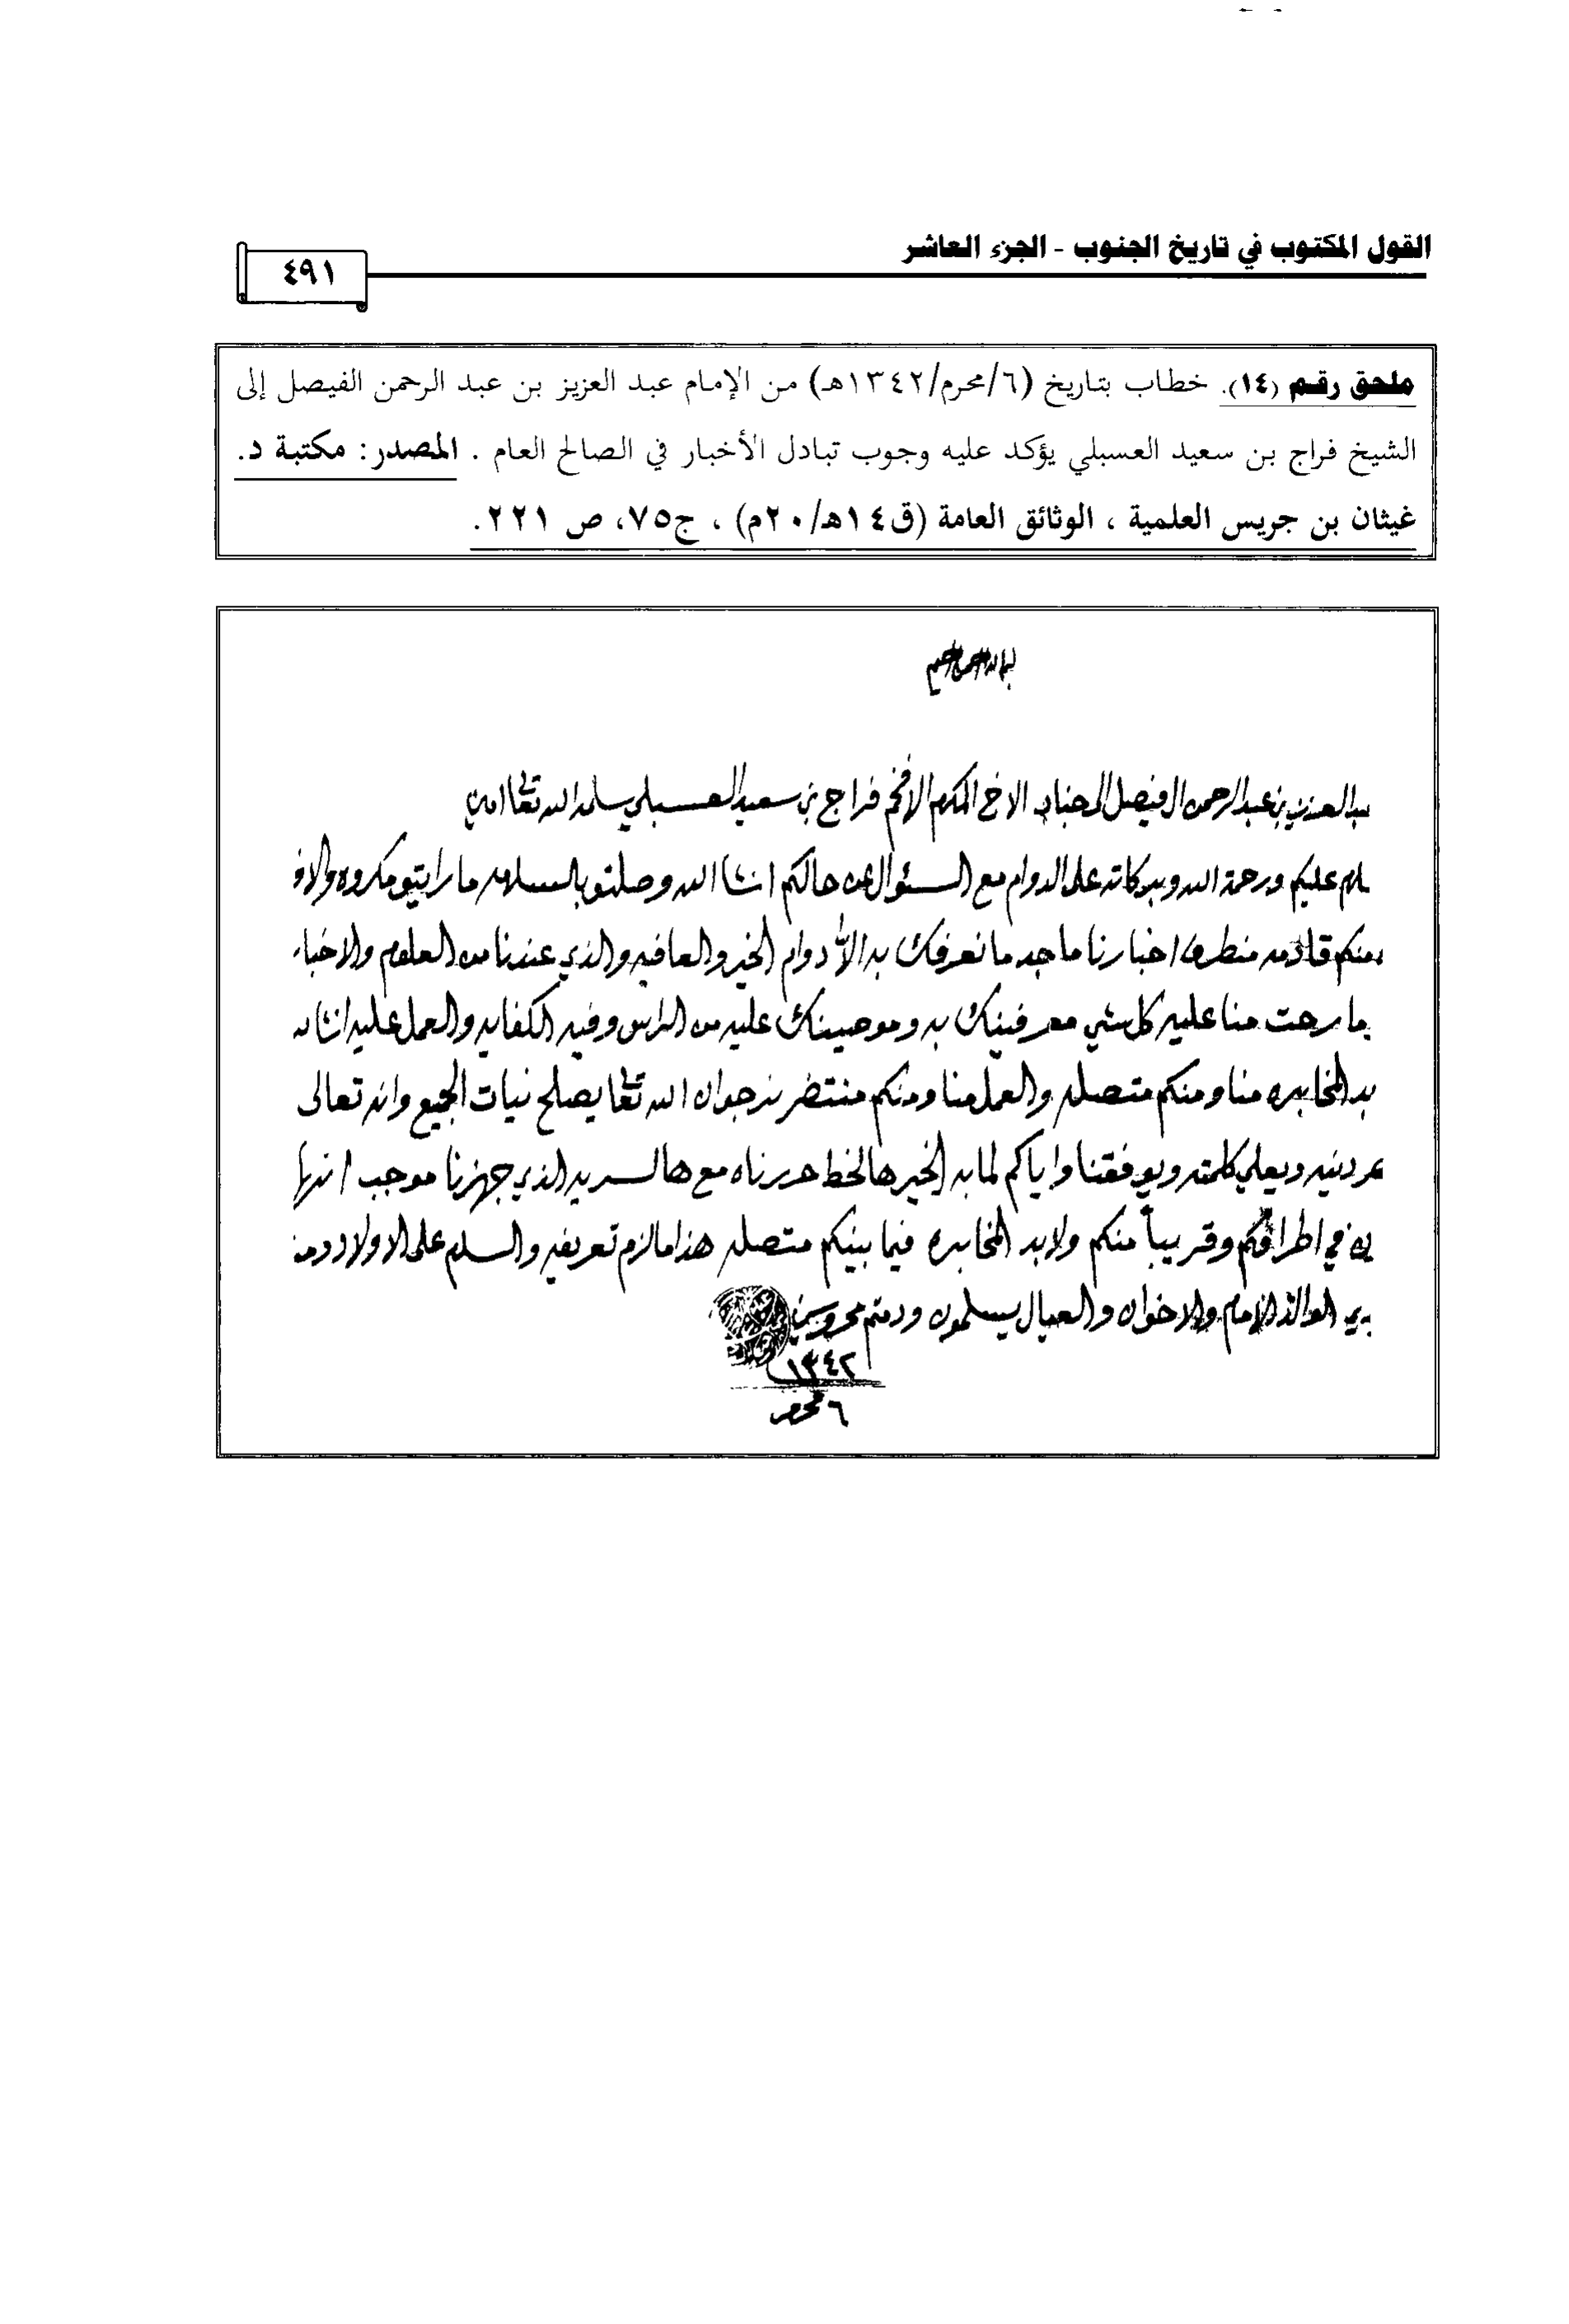 القول المكتوب في تاريخ الجنوب - الجزء العاشر
٤٩١
ملحق رقم (١٤). خطاب بتاريخ (٦/محرم/١٣٤٢هـ) من الإمام عبد العزيز بن عبد الرحمن الفيصل إلى
الشيخ فراج بن سعيد العسبلي يؤكد عليه وجوب تبادل الأخبار في الصالح العام . المصدر: مكتبة د.
غيثان بن جريس العلمية ، الوثائق العامة (ق١٤هـ/٢٠م) ، ج٧٥، ص ٢٢١.
بسم الله الرحمن الرحيم
عبد العزيز بن عبد الرحمن ال فيصل الى جناب الاخ المكرم الافخم فراج بن سعيد العسبلي سلمه الله تعالى امين
عليكم ورحمة الله وبركاته على الدوام مع السئوال عن حالكم انشا الله وصلتو بالسلامه ما رايتو مكروه والاو
منكم قادمه منطرف اخبارنا ماجد ما نعرفك به الا دوام الخير والعافيه والذي عندنا من العلوم والاخبا
ما رحت منا عليه كل شي معرفينك به وموصينك عليه من الراس وفيه الكفايه والعمل عليه انشا
بد المخابره منا ومنكم متصله والعمل منا ومنكم منتضر نرجوان الله تعالى يصلح نيات الجميع وانه تعالى
دينه ويعلي كلمته ويوفقنا واياكم لما به الخير هالخط حررناه مع هالسريه الذي جهزنا موجب انها
في اطرافكم وقريباً منكم ولابد المخابره فيما بينكم متصله هذا مالزم تعريفه والسلام على الاولاد ومنا
الوالد الامام والاخوان والعيال يسلمون ودمتم محروسين
١٣٤٢
٦ محرم